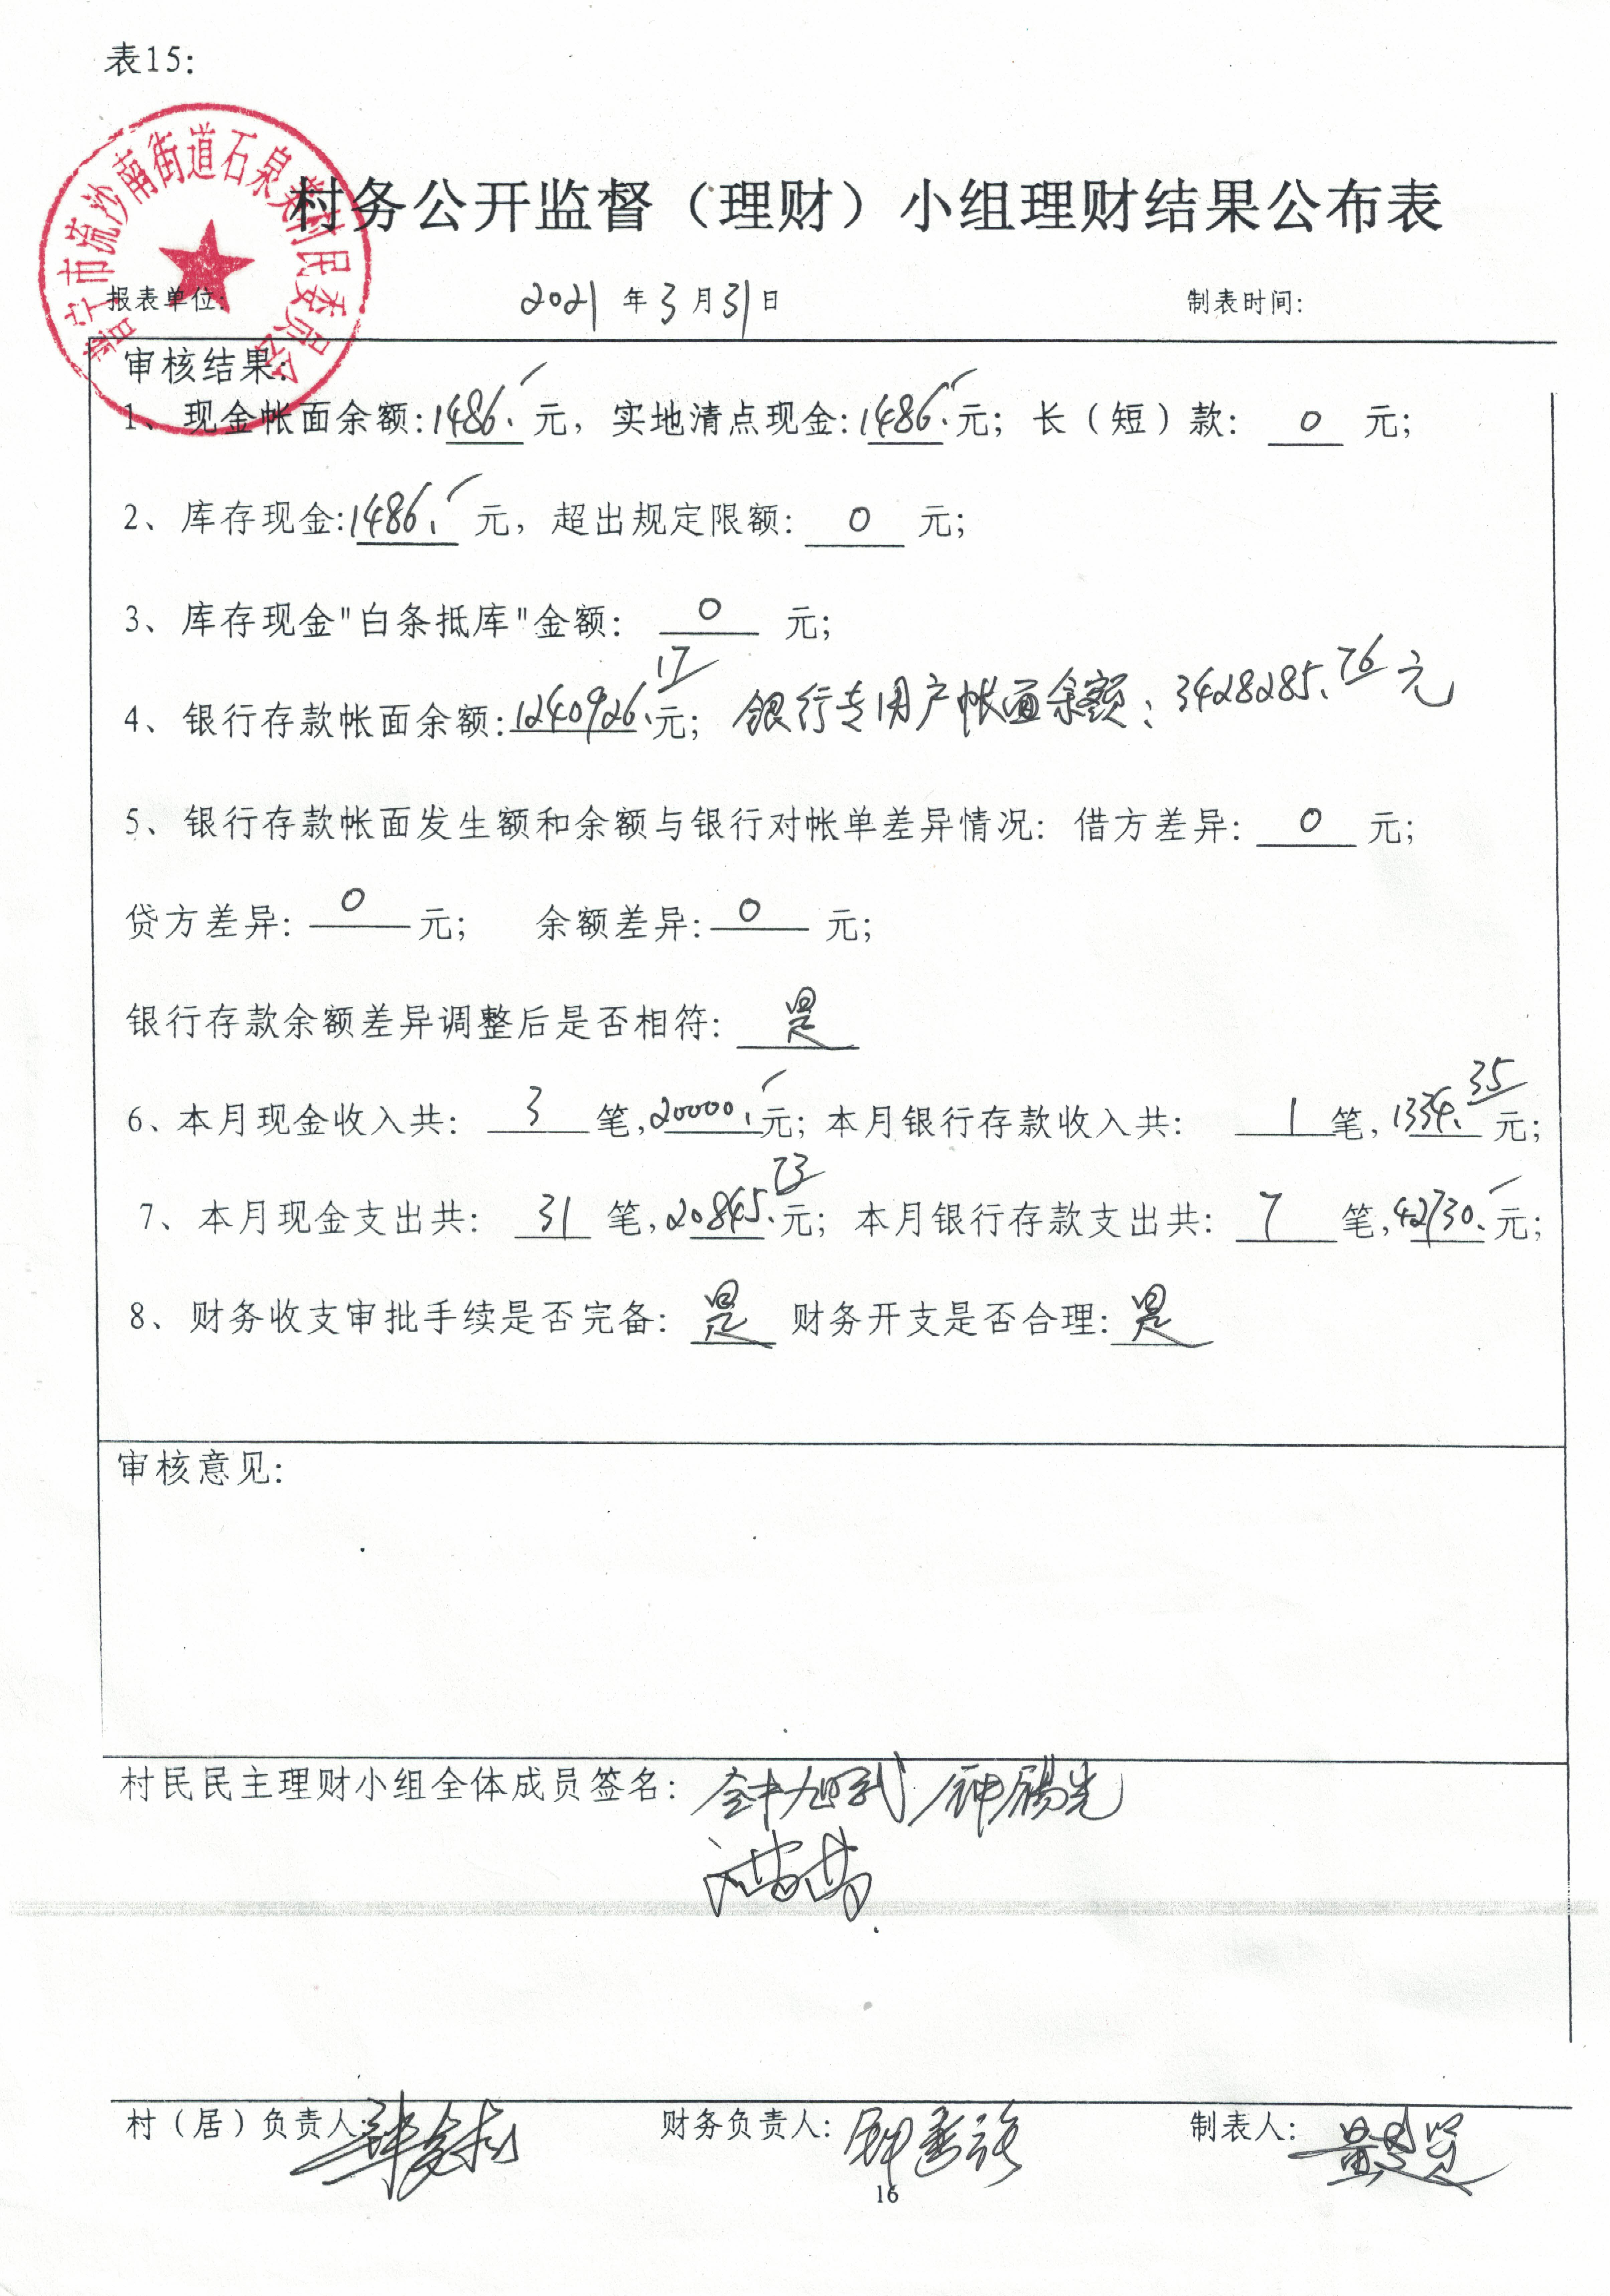 表15:
普宁市流沙南街道石泉 村民委员会
村务公开监督（理财）小组理财结果公布表
报表单位: 2021 年 3 月 31 日 制表时间:
审核结果:
1、现金帐面余额: 1486. 元, 实地清点现金: 1486. 元; 长（短）款: 0 元;
2、库存现金: 1486. 元, 超出规定限额: 0 元;
3、库存现金"白条抵库"金额: 0 元;
4、银行存款帐面余额: 1240926.17 元; 银行专用户帐面余额: 3428285.76 元
5、银行存款帐面发生额和余额与银行对帐单差异情况: 借方差异: 0 元;
贷方差异: 0 元; 余额差异: 0 元;
银行存款余额差异调整后是否相符: 是
6、本月现金收入共: 3 笔, 20000. 元; 本月银行存款收入共: 1 笔, 1334.35 元;
7、本月现金支出共: 31 笔, 20845.73 元; 本月银行存款支出共: 7 笔, 42730. 元;
8、财务收支审批手续是否完备: 是 财务开支是否合理: 是
审核意见:
村民民主理财小组全体成员签名:
村（居）负责人: 财务负责人: 制表人:
16